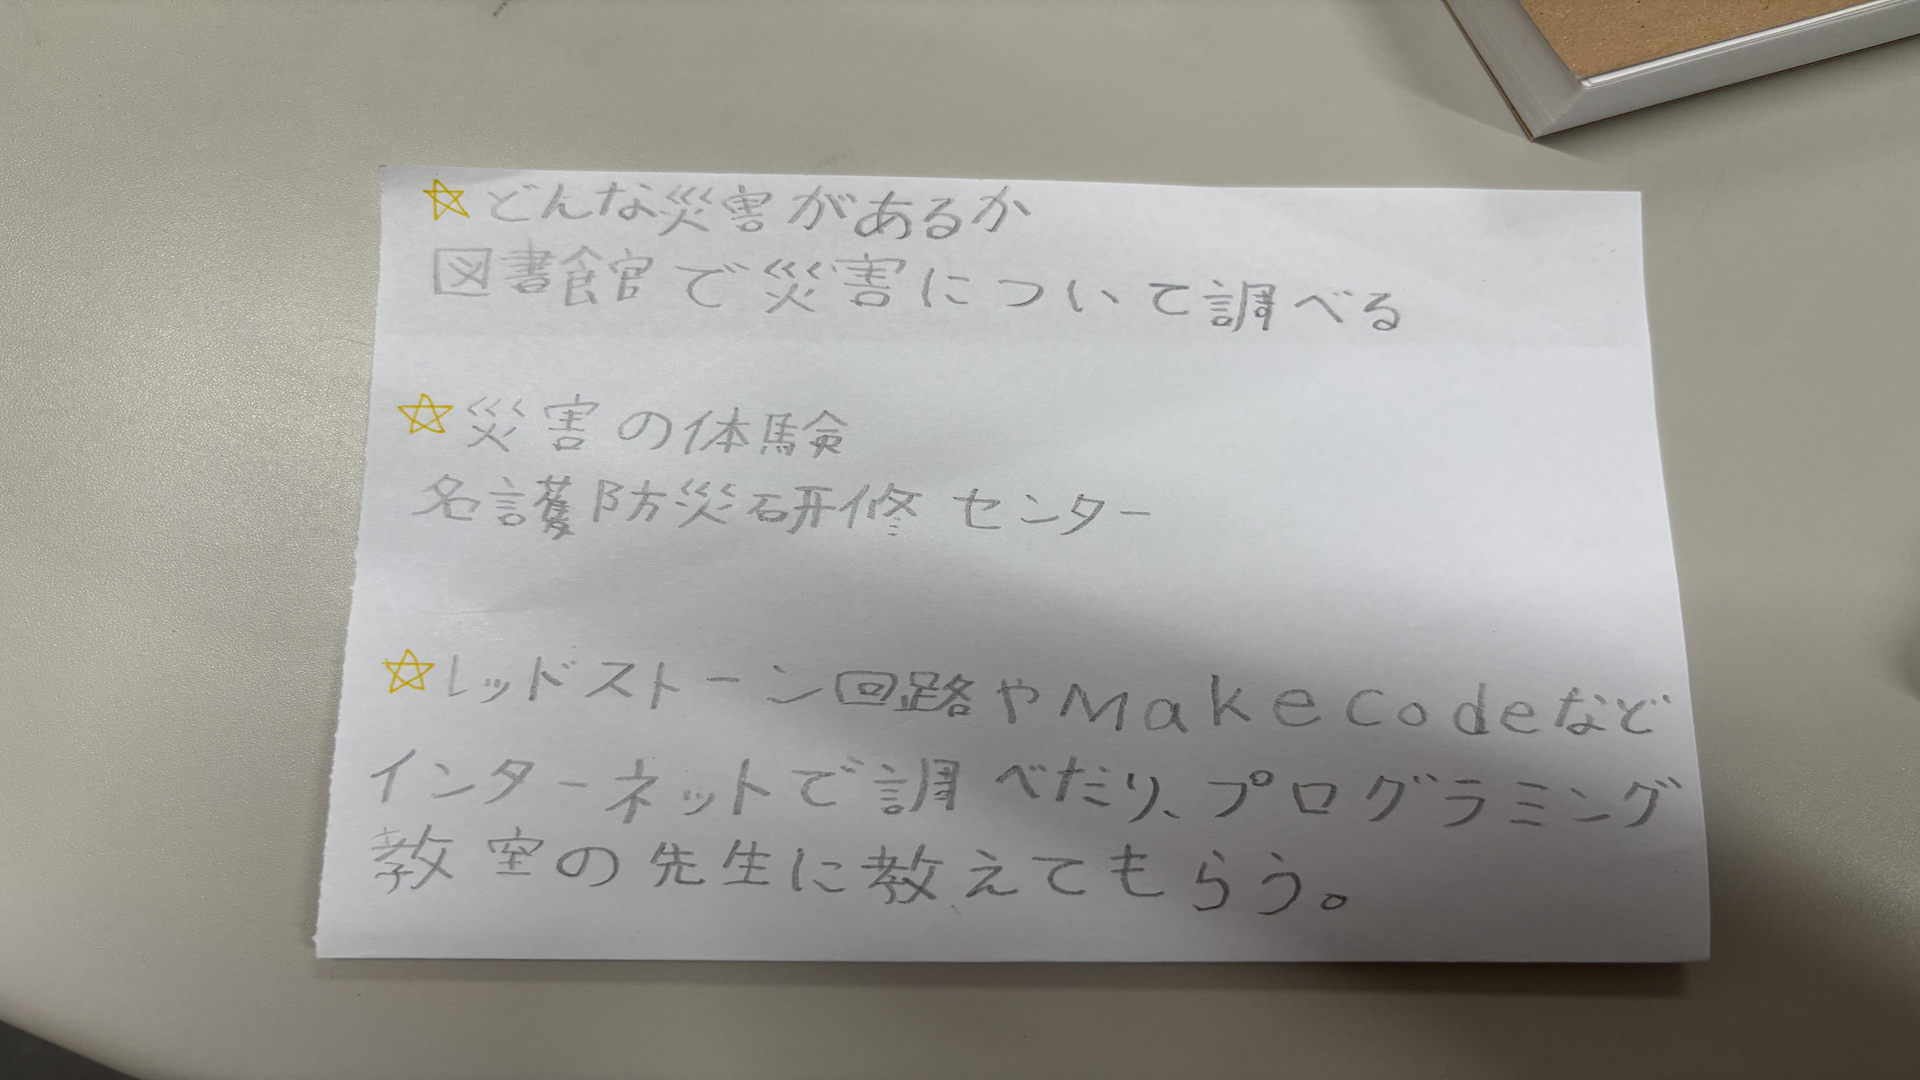 ☆どんな災害があるか
図書館で災害について調べる
☆災害の体験
名護防災研修センター
☆レッドストーン回路やMakeCodeなど
インターネットで調べたり、プログラミング
教室の先生に教えてもらう。